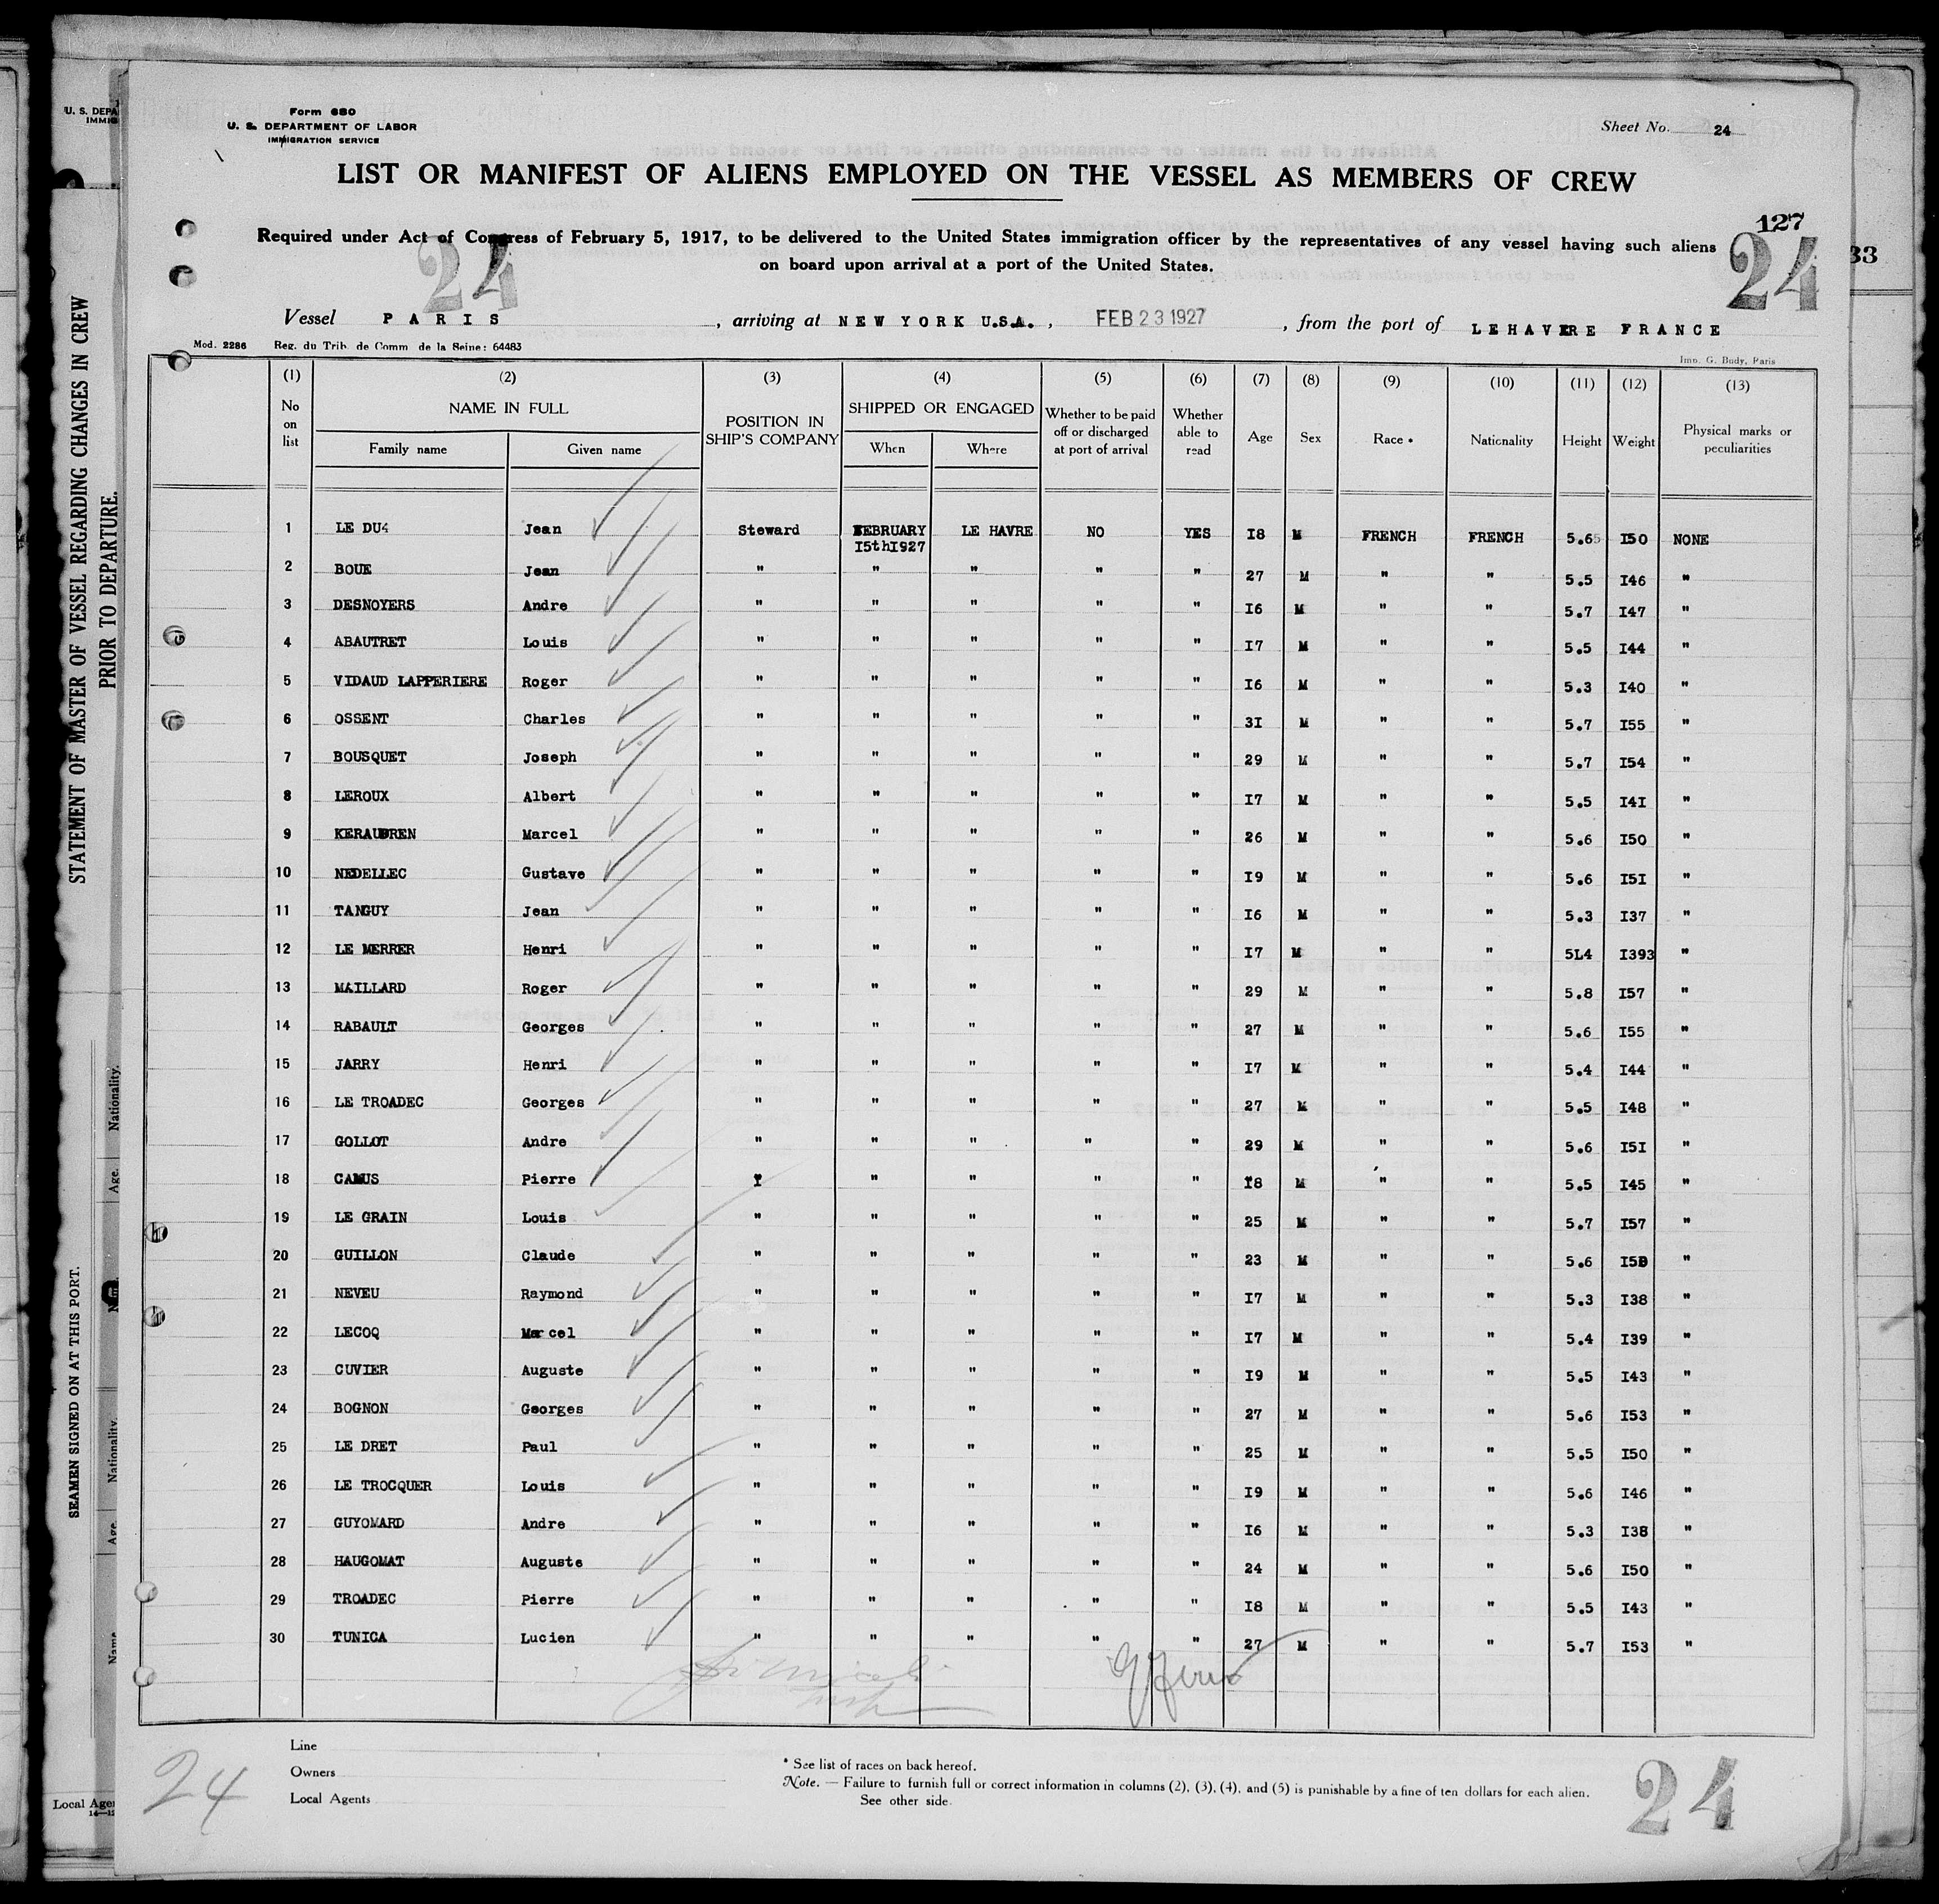 Form 680
U. S. DEPARTMENT OF LABOR
IMMIGRATION SERVICE
Sheet No. 24
LIST OR MANIFEST OF ALIENS EMPLOYED ON THE VESSEL AS MEMBERS OF CREW
127
Required under Act of Congress of February 5, 1917, to be delivered to the United States immigration officer by the representatives of any vessel having such aliens
on board upon arrival at a port of the United States.
24
24
33
Vessel PARIS , arriving at NEW YORK U.S.A. , FEB 23 1927 , from the port of LEHAVRE FRANCE
Mod. 2286 Reg. du Trib. de Comm. de la Seine: 64483
Imp. G. Body, Paris
(1) (2) (3) (4) (5) (6) (7) (8) (9) (10) (11) (12) (13)
No on list NAME IN FULL POSITION IN SHIP'S COMPANY SHIPPED OR ENGAGED Whether to be paid off or discharged at port of arrival Whether able to read Age Sex Race * Nationality Height Weight Physical marks or peculiarities
Family name Given name When Where
1 LE DU4 Jean Steward FEBRUARY 15thI927 LE HAVRE NO YES I8 M FRENCH FRENCH 5.65 I50 NONE
2 BOUE Jean " " " " " 27 M " " 5.5 I46 "
3 DESNOYERS Andre " " " " " I6 M " " 5.7 I47 "
4 ABAUTRET Louis " " " " " I7 M " " 5.5 I44 "
5 VIDAUD LAPPERIERE Roger " " " " " I6 M " " 5.3 I40 "
6 OSSENT Charles " " " " " 3I M " " 5.7 I55 "
7 BOUSQUET Joseph " " " " " 29 M " " 5.7 I54 "
8 LEROUX Albert " " " " " I7 M " " 5.5 I4I "
9 KERAUDREN Marcel " " " " " 26 M " " 5.6 I50 "
10 NEDELLEC Gustave " " " " " I9 M " " 5.6 I5I "
11 TANGUY Jean " " " " " I6 M " " 5.3 I37 "
12 LE MERRER Henri " " " " " I7 M " " 5L4 I393 "
13 MAILLARD Roger " " " " " 29 M " " 5.8 I57 "
14 RABAULT Georges " " " " " 27 M " " 5.6 I55 "
15 JARRY Henri " " " " " I7 M " " 5.4 I44 "
16 LE TROADEC Georges " " " " " 27 M " " 5.5 I48 "
17 GOLLOT Andre " " " " " 29 M " " 5.6 I5I "
18 CAMUS Pierre " " " " " I8 M " " 5.5 I45 "
19 LE GRAIN Louis " " " " " 25 M " " 5.7 I57 "
20 GUILLON Claude " " " " " 23 M " " 5.6 I50 "
21 NEVEU Raymond " " " " " I7 M " " 5.3 I38 "
22 LECOQ Marcel " " " " " I7 M " " 5.4 I39 "
23 CUVIER Auguste " " " " " I9 M " " 5.5 I43 "
24 BOGNON Georges " " " " " 27 M " " 5.6 I53 "
25 LE DRET Paul " " " " " 25 M " " 5.5 I50 "
26 LE TROCQUER Louis " " " " " I9 M " " 5.6 I46 "
27 GUYOMARD Andre " " " " " I6 M " " 5.3 I38 "
28 HAUGOMAT Auguste " " " " " 24 M " " 5.6 I50 "
29 TROADEC Pierre " " " " " I8 M " " 5.5 I43 "
30 TUNICA Lucien " " " " " 27 M " " 5.7 I53 "
Line
Owners
Local Agents
* See list of races on back hereof.
Note. — Failure to furnish full or correct information in columns (2), (3), (4), and (5) is punishable by a fine of ten dollars for each alien.
See other side.
24
24
U. S. DEPA
IMMIG
STATEMENT OF MASTER OF VESSEL REGARDING CHANGES IN CREW
PRIOR TO DEPARTURE.
SEAMEN SIGNED ON AT THIS PORT.
Nationality.
Age.
Nationality.
Age.
Name
Local Agen